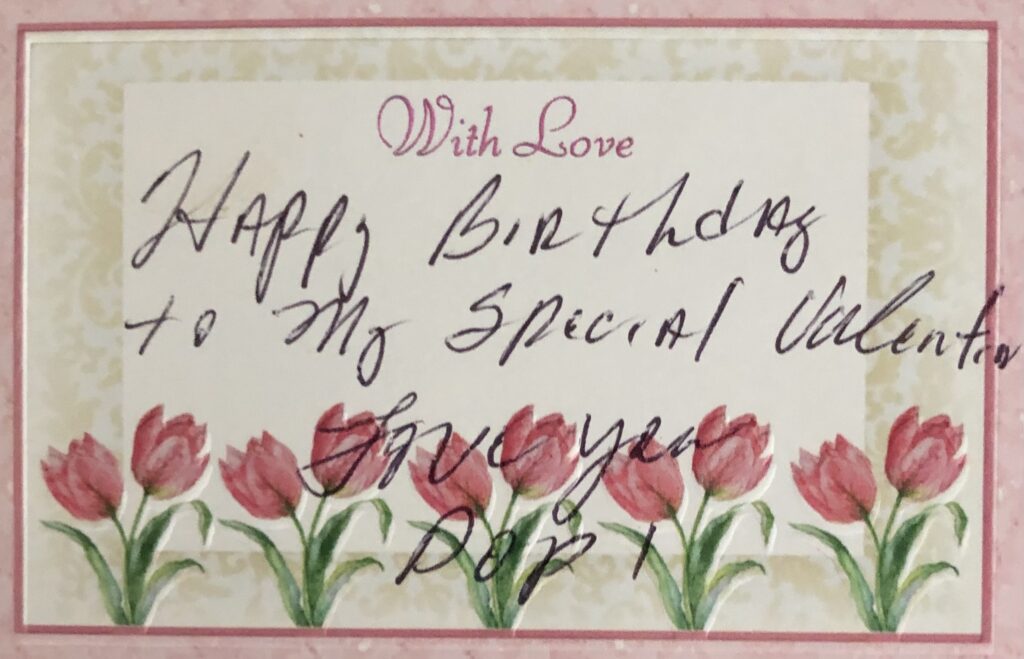 With Love
Happy Birthday
to My Special Valentin
Love you
Pop 1